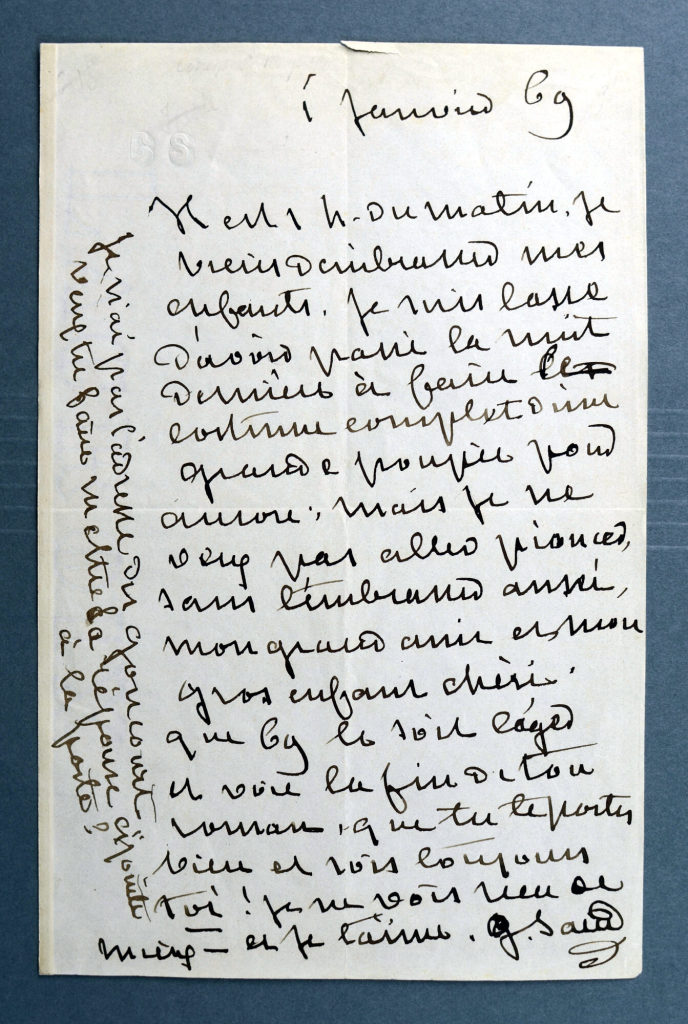 GS
1 Janvier 69
Il est 1 h. du matin, je
viens d'embrasser mes
enfants. je suis lasse
d'avoir passé la nuit
dernière à faire le
costume complet d'une
grande poupée pour
aurore ; mais je ne
veux pas aller pioncer,
sans t'embrasser aussi,
mon grand ami et mon
gros enfant chéri.
que 69 te soit léger
et voie la fin de ton
roman, que tu te portes
bien et sois toujours
toi ! je ne vois rien de
mieux – et je t'aime. G. Sand
je n'ai pas l'adresse des goncourt
veux tu faire mettre la réponse ci jointe
à la poste ?